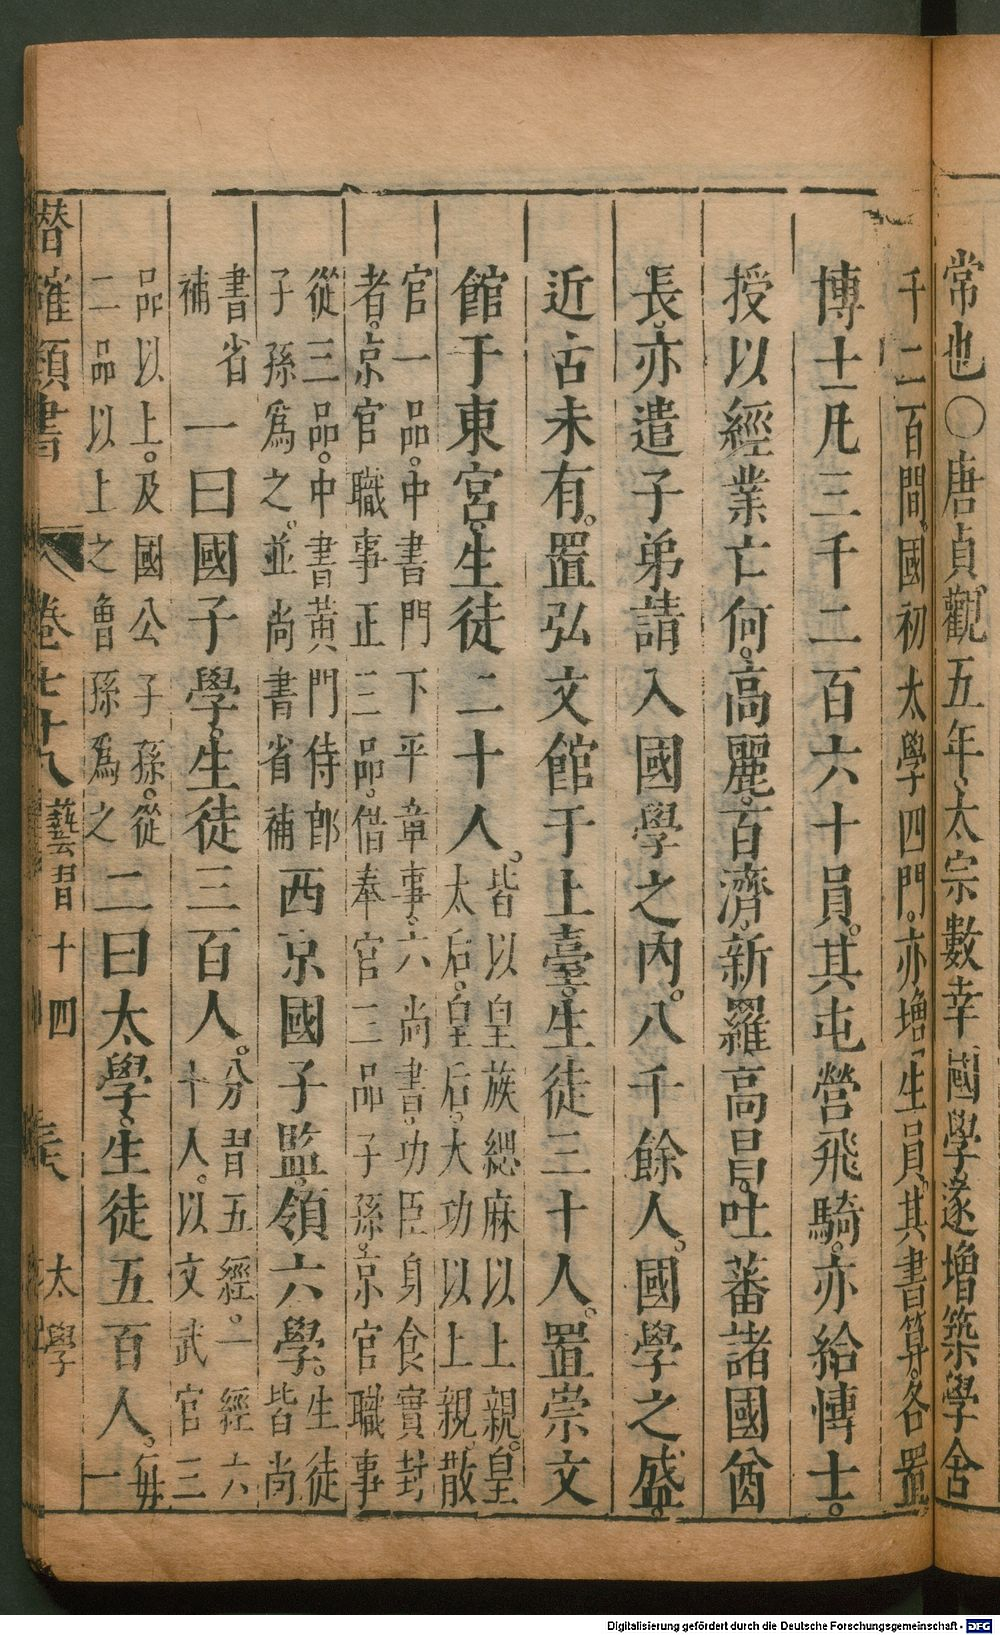 常也○唐貞觀五年太宗數幸國學遂增築學舍
千二百間。國初太學四門。亦增生員。其書算。各置
博士凡三千二百六十員。其屯營飛騎。亦給博士。
授以經業亡何。高麗。百濟。新羅高昌。吐蕃諸國酋
長。亦遣子弟請入國學之內。八千餘人。國學之盛。
近古未有。置弘文館于上臺。生徒三十人。置崇文
館于東宮。生徒二十人。
皆以皇族緦麻以上親。皇
太后。皇后。大功以上親散
官一品。中書門下平章事。六尚書。功臣身食實封
者。京官職事正三品。借奉官三品子孫。京官職事
從三品。中書黃門侍郎
子孫爲之。並尚書省補
西京國子監。領六學。
生徒
皆尚
書省
補
一曰國子學。生徒三百人。
分習五經。一經六
十人。以文武官三
品以上。及國公子孫。從
二品以上之曾孫爲之
二曰太學。生徒五百人。
每
一
潛確類書 卷七十八 藝習十四 太學
Digitalisierung gefördert durch die Deutsche Forschungsgemeinschaft - DFG